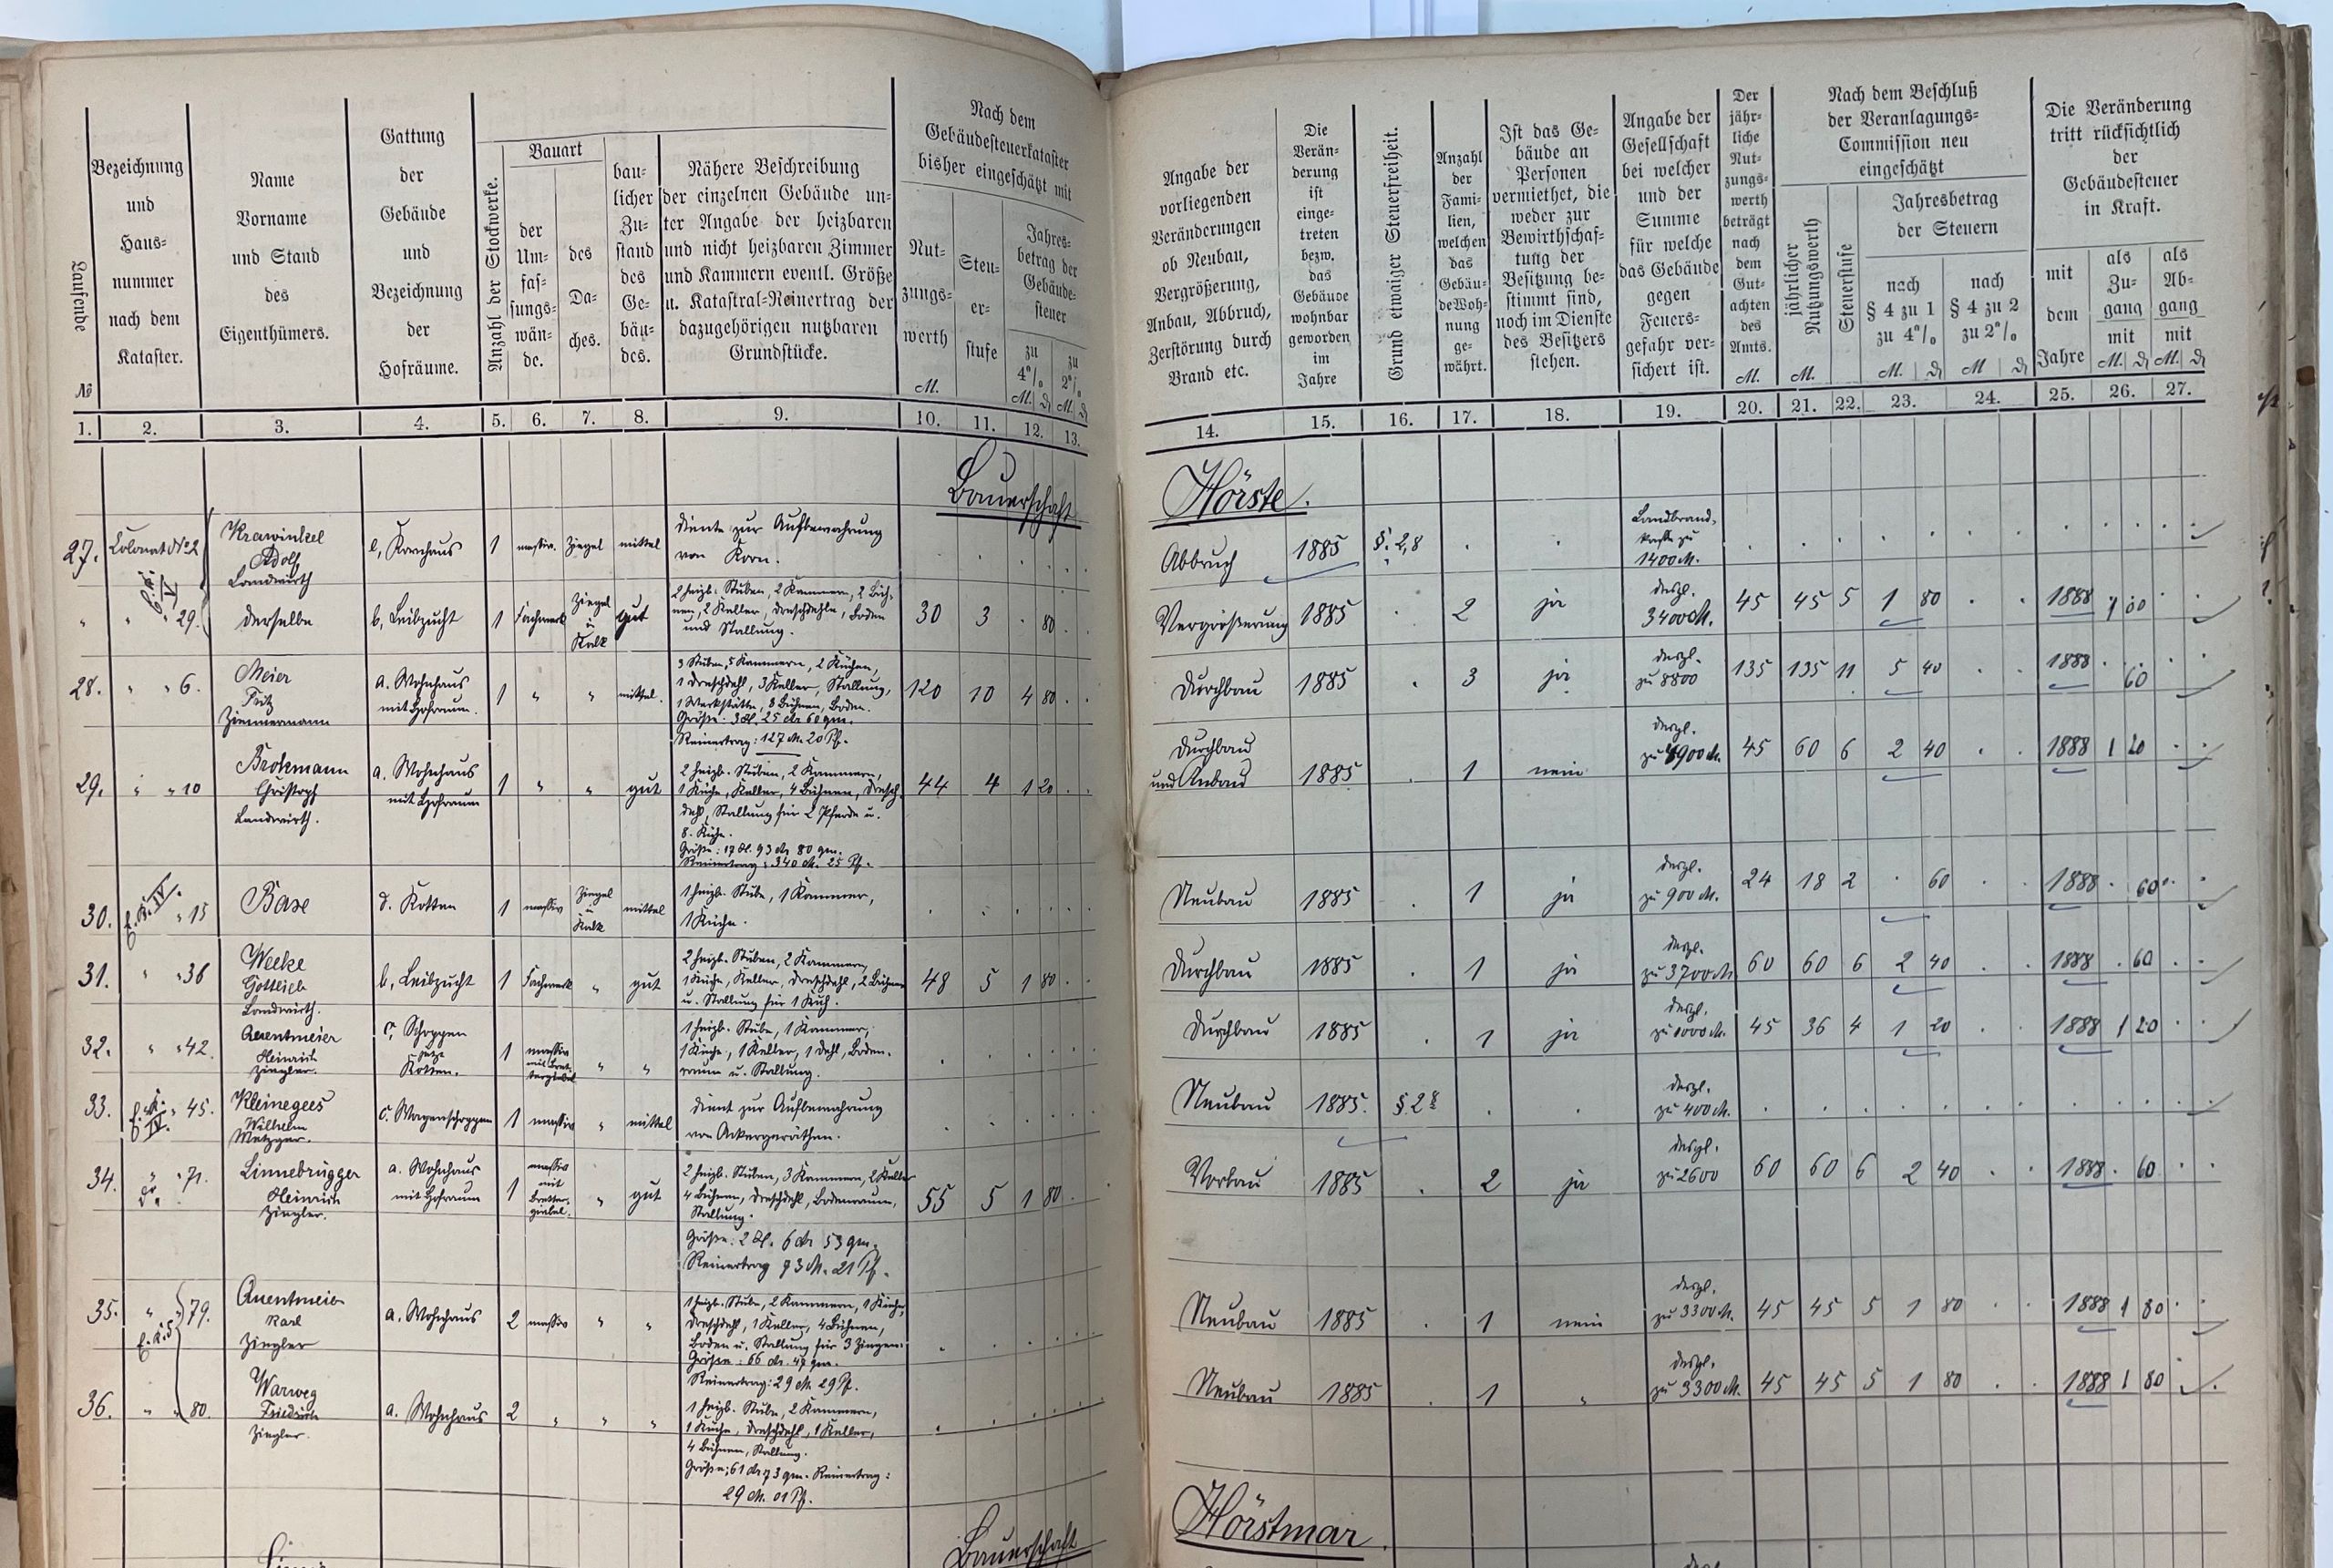 Laufende №
Bezeichnung und Haus-nummer nach dem Kataster.
Name Vorname und Stand des Eigenthümers.
Gattung der Gebäude und Bezeichnung der Hofräume.
Anzahl der Stockwerke.
Bauart
der Um-fas-sungs-wän-de.
des Da-ches.
bau-licher Zu-stand des Ge-bäu-des.
Nähere Beschreibung der einzelnen Gebäude un-ter Angabe der heizbaren und nicht heizbaren Zimmer und Kammern eventl. Größe u. Katastral-Reinertrag der dazugehörigen nutzbaren Grundstücke.
Nach dem Gebäudesteuerkataster bisher eingeschätzt mit
Nut-zungs-werth M.
Steu-er-stufe
Jahres-betrag der Gebäude-steuer
zu 4% M. ₰
zu 2% M. ₰
Angabe der vorliegenden Veränderungen ob Neubau, Vergrößerung, Anbau, Abbruch, Zerstörung durch Brand etc.
Die Verän-derung ist einge-treten bezw. das Gebäude wohnbar geworden im Jahre
Grund etwaiger Steuerfreiheit.
Anzahl der Fami-lien, welchen das Gebäu-de Woh-nung ge-währt.
Ist das Ge-bäude an Personen vermiethet, die weder zur Bewirthschaf-tung der Besitzung be-stimmt sind, noch im Dienste des Besitzers stehen.
Angabe der Gesellschaft bei welcher und der Summe für welche das Gebäude gegen Feuers-gefahr ver-sichert ist.
Der jähr-liche Nut-zungs-werth beträgt nach dem Gut-achten des Amts. M.
Nach dem Beschluß der Veranlagungs-Commission neu eingeschätzt
jährlicher Nutzungswerth M.
Steuerstufe
Jahresbetrag der Steuern
nach § 4 zu 1 zu 4% M. ₰
nach § 4 zu 2 zu 2% M ₰
Die Veränderung tritt rücksichtlich der Gebäudesteuer in Kraft.
mit dem Jahre
als Zu-gang mit M. ₰
als Ab-gang mit M. ₰
1. 2. 3. 4. 5. 6. 7. 8. 9. 10. 11. 12. 13. 14. 15. 16. 17. 18. 19. 20. 21. 22. 23. 24. 25. 26. 27.
Bauerschaft Hörste.
27. Colonat № 2 Krawinkel Adolf Landwirth e, Kornhaus 1 massiv. Ziegel mittel
diente zur Aufbewahrung
von Korn.
Abbruch 1885 §. 2,8 Landbrand-kasse zu 1400 M.
" " " 29. derselbe b, Leibzucht 1 Fachwerk Ziegel u Kalk gut
2 heizb. Stuben, 2 Kammern, 2 Büh-
nen, 2 Keller, Dreschdehle, Boden
und Stallung.
30 3 . 80 Vergrößerung 1885 . 2 ja desgl. 3400 M. 45 45 5 1 80 . . 1888 1 00
28. " " 6. Meier Fritz Zimmermann a. Wohnhaus mit Hofraum. 1 " " mittel.
3 Stuben, 5 Kammern, 2 Küchen,
1 Dreschdehl, 3 Keller, Stallung,
1 Werkstätte, 3 Bühnen, Boden.
Größe: 3 H. 25 Ar 60 qm.
Reinertrag: 127 M. 20 Pf.
120 10 4 80 Durchbau 1885 . 3 ja desgl. zu 8800 135 135 11 5 40 . . 1888 . 60
29. " " 10 Brokmann Christoph Landwirth. a. Wohnhaus mit Hofraum 1 " " gut
2 heizb. Stuben, 2 Kammern,
1 Küche, Keller, 4 Bühnen, Dresch-
dehl, Stallung für 2 Pferde u.
8. Kühe.
Größe: 17 H. 93 Ar 80 qm.
Reinertrag: 340 M. 25 Pf.
44 4 1 20 Durchbau und Anbau 1885 . 1 nein desgl. zu 4900 M. 45 60 6 2 40 . . 1888 1 20
30. E.K. IV. " 15 Base d. Kotten 1 massiv Ziegel u Kalk mittel
1 heizb. Stube, 1 Kammer,
1 Küche.
Neubau 1885 . 1 ja desgl. zu 900 M. 24 18 2 . 60 . . 1888 . 60
31. " " 36 Weeke Gottlieb Landwirth. b, Leibzucht 1 Fachwerk " gut
2 heizb. Stuben, 2 Kammern,
1 Küche, Keller, Dreschdehl, 2 Bühnen
u. Stallung für 1 Kuh.
48 5 1 80 Durchbau 1885 . 1 ja desgl. zu 3700 M 60 60 6 2 40 . . 1888 . 60
32. " " 42. Quentmeier Heinrich Ziegler. c, Schoppen jetzt Kotten. 1 massiv mit Bret-tergiebel " "
1 heizb. Stube, 1 Kammer,
1 Küche, 1 Keller, 1 Dehl, Boden-
raum u. Stallung.
Durchbau 1885 . 1 ja desgl. zu 1000 M. 45 36 4 1 20 . . 1888 1 20
33. E. K. IV. " 45. Kleinegees Wilhelm Metzger. c. Wagenschoppen 1 massiv " mittel
dient zur Aufbewahrung
von Ackergeräthen.
Neubau 1885. § 2 8 desgl. zu 400 M.
34. " " 71. Linnebrügger Heinrich Ziegler. a. Wohnhaus mit Hofraum 1 massiv mit Bretter-giebel. " gut
2 heizb. Stuben, 3 Kammern, 2 Keller
4 Bühnen, Dreschdehl, Bodenraum,
Stallung.
Größe: 2 H. 6 Ar 53 qm.
Reinertrag 73 M. 21 Pf.
55 5 1 80 Vorbau 1885 . 2 ja desgl. zu 2600 60 60 6 2 40 . . 1888 . 60
35. " " 79. E. K. 5 Quentmeier Karl Ziegler a. Wohnhaus 2 massiv " "
1 heizb. Stube, 2 Kammern, 1 Küche,
Dreschdehl, 1 Keller, 4 Bühnen,
Boden u. Stallung für 3 Ziegen.
Größe: 66 Ar. 47 qm.
Reinertrag: 29 M. 29 Pf.
Neubau 1885 . 1 nein desgl. zu 3300 M. 45 45 5 1 80 . . 1888 1 80
36. " " 80. Warweg Friedrich Ziegler. a. Wohnhaus 2 " " "
1 heizb. Stube, 2 Kammern,
1 Küche, Dreschdehl, 1 Keller,
4 Bühnen, Stallung.
Größe: 61 Ar 73 qm. Reinertrag:
29 M. 01 Pf.
Neubau 1885 . 1 " desgl. zu 3300 M. 45 45 5 1 80 . . 1888 1 80
Bauerschaft Hörstmar.
desgl